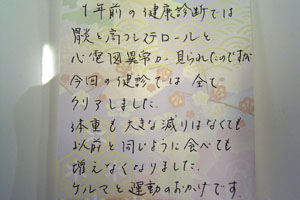 1年前の健康診断では
胃炎と高コレステロールと
心電図異常が見られたのですが
今回の健診では全て
クリアしました。
体重も大きな減りはなくても
以前と同じように食べても
増えなくなりました。
ケルマと運動のおかげです。